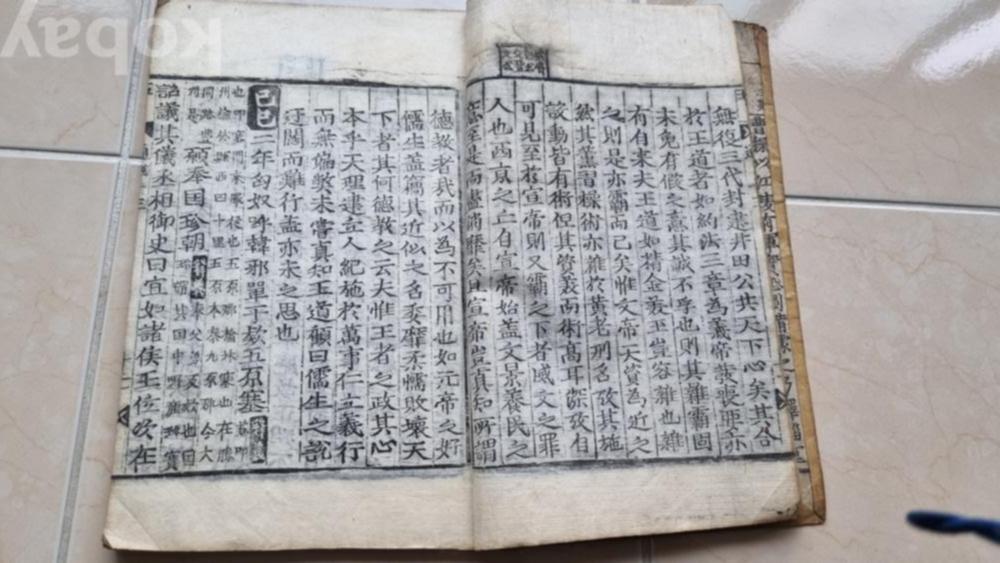 無役三代封建井田公共天下心矣其合
於王道者如約法三章為義帝發喪亦
未免有假之意其誠不孚也則其雜霸固
有自来夫王道如精金美玉豈容雜也雜
之則是亦霸而已矣惟文帝天資為近之
然其薰習操術亦雜於黃老刑名攷其施
設動皆有術但其資美而術高耳深攷自
可見至於宣帝則又霸之下者威文之罪
人也西京之亡自宣帝始盖文景養民之
意至是而盡消靡矣且宣帝豈真知所謂
德敎者我而以為不可用也如元帝之好
儒生盖竊其近似之名委靡柔懦敗壞天
下者其何德敎之云夫惟王者之政其心
本乎天理建立人紀施於萬事仁立義行
而無偏弊未嘗真知王道顧曰儒生之說
迂闊而難行盖亦未之思也
己巳二年匈奴呼韓邪單于欵五原塞
願奉国珍朝
詔議其儀丞相御史曰宜如諸侯王位次在
kobay